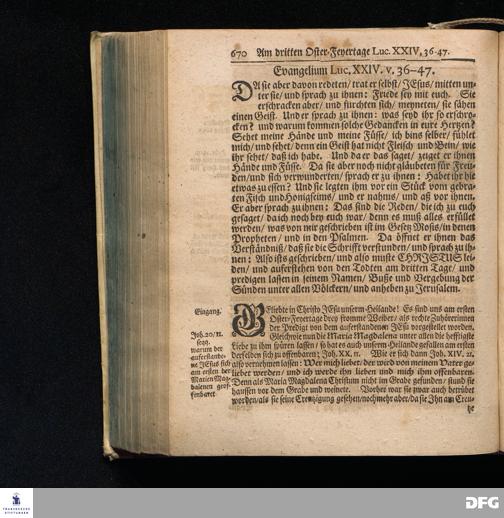 670 Am dritten Oster-Feyertage Luc. XXIV, 36-47.
Evangelium Luc. XXIV. v. 36-47.
DA sie aber davon redeten/ trat er selbst/ JEsus/ mitten un-
ter sie/ und sprach zu ihnen: Friede sey mit euch. Sie
erschracken aber/ und furchten sich/ meyneten/ sie sähen
einen Geist. Und er sprach zu ihnen: was seyd ihr so erschro-
cken? und warum kommen solche Gedancken in eure Hertzen?
Sehet meine Hände und meine Füsse/ ich bins selber/ fühlet
mich/ und sehet/ denn ein Geist hat nicht Fleisch und Bein/ wie
ihr sehet/ daß ich habe. Und da er das saget/ zeiget er ihnen
Hände und Füsse. Da sie aber noch nicht gläubeten für Freu-
den/ und sich verwunderten/ sprach er zu ihnen: Habet ihr hie
etwas zu essen? Und sie legten ihm vor ein Stück vom gebra-
ten Fisch und Honigseims/ und er nahms/ und aß vor ihnen.
Er aber sprach zu ihnen: Das sind die Reden/ die ich zu euch
gesaget/ da ich noch bey euch war/ denn es muß alles erfüllet
werden/ was von mir geschrieben ist im Gesetz Mosis/ in denen
Propheten/ und in den Psalmen. Da öffnet er ihnen das
Verständniß/ daß sie die Schrifft verstunden/ und sprach zu ih-
nen: Also ists geschrieben/ und also muste CHRISTUS lei-
den/ und auferstehen von den Todten am dritten Tage/ und
predigen lassen in seinem Namen/ Busse und Vergebung der
Sünden unter allen Völckern/ und anheben zu Jerusalem.
Eingang.
Joh. 20/ 11.
seqq.
warum der
auferstande-
ne JEsus sich
am ersten der
Marien Mag-
dalenen geof-
fenbaret
GEliebte in Christo JEsu unserm Heilande! Es sind uns am ersten
Oster-Feyertage drey fromme Weiber/ als rechte Zuhörerinnen
der Predigt von dem auferstandenen JEsu vorgestellet worden.
Gleichwie nun die Maria Magdalena unter allen die hefftigste
Liebe zu ihm spüren lassen/ so hat es auch unserm Heilande gefallen am ersten
derselben sich zu offenbaren; Joh. XX. 11. Wie er sich dann Joh. XIV. 21.
also vernehmen lassen: Wer mich liebet/ der wird von meinem Vater ge-
liebet werden/ und ich werde ihn lieben und mich ihm offenbaren.
Denn als Maria Magdalena Christum nicht im Grabe gefunden/ stund sie
haussen vor dem Grabe und weinete. Vorher war sie zwar auch betrübet
worden/ als sie seine Creutzigung gesehen/ noch mehr aber/ da sie Ihn am Creu-
tze
FRANCKESCHE
STIFTUNGEN
DFG